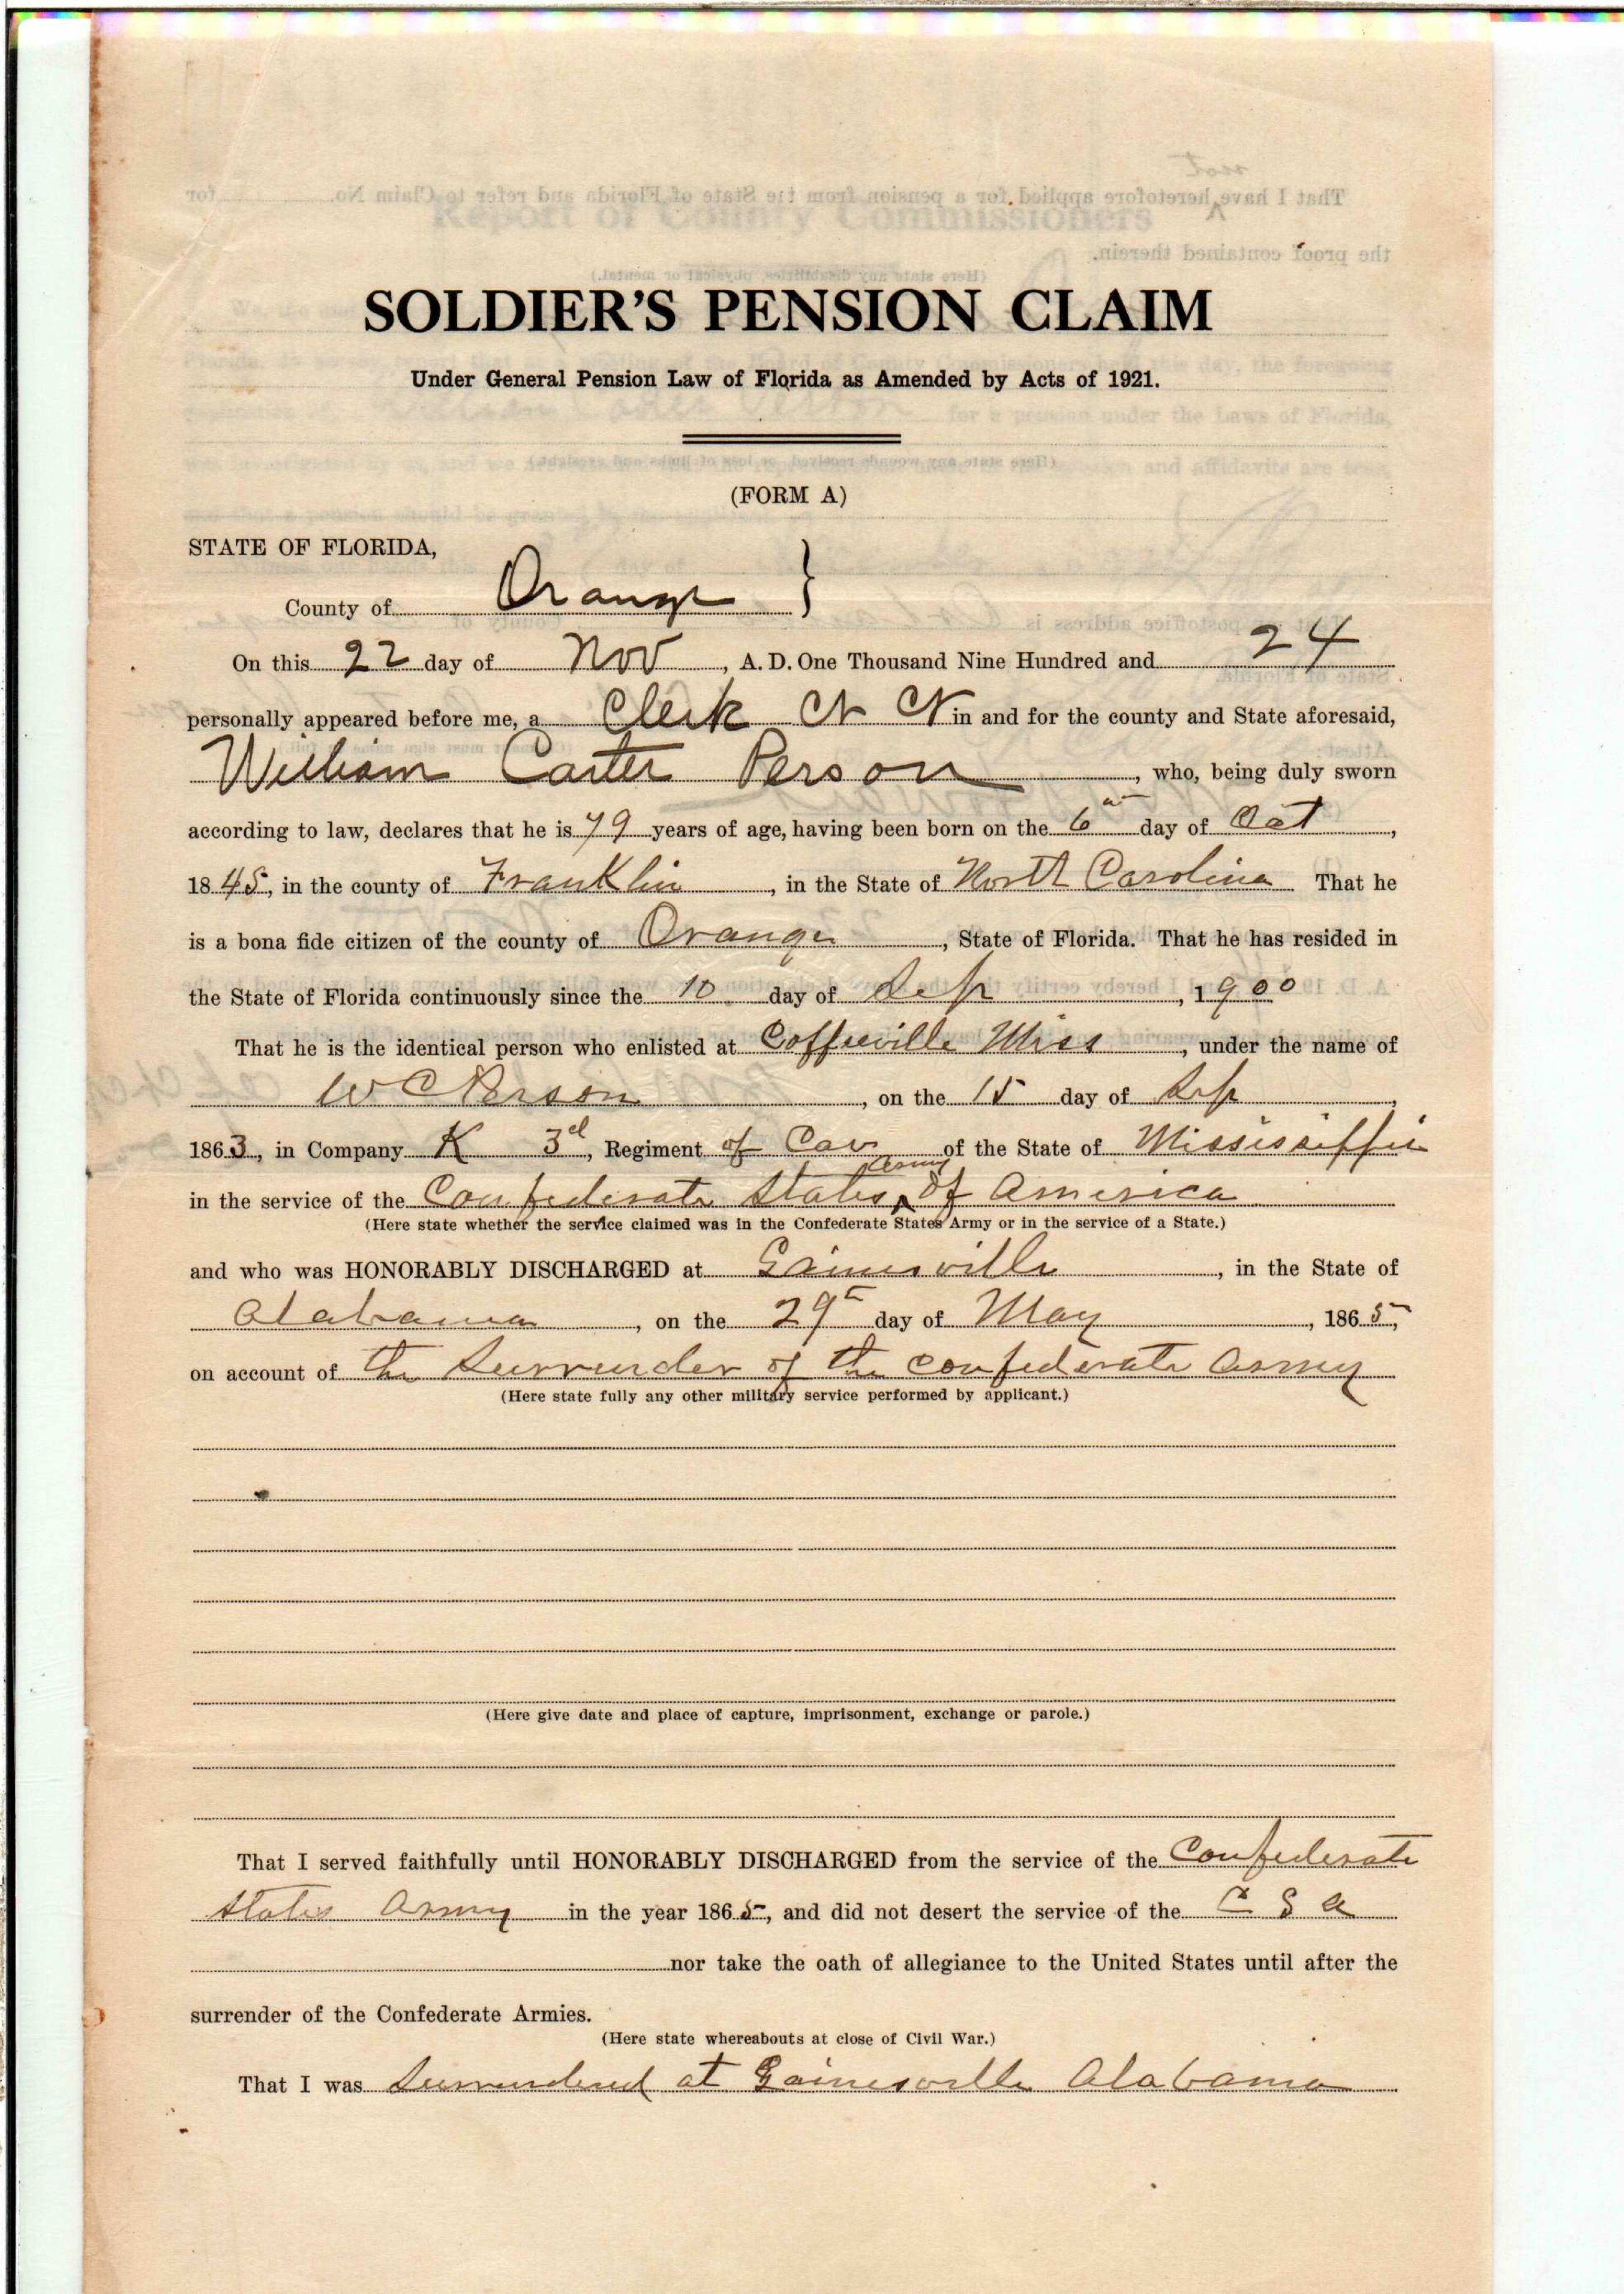 SOLDIER'S PENSION CLAIM
Under General Pension Law of Florida as Amended by Acts of 1921.
(FORM A)
STATE OF FLORIDA,
County of Orange }
On this 22 day of Nov, A. D. One Thousand Nine Hundred and 24
personally appeared before me, a Clerk Ct Ct in and for the county and State aforesaid,
William Carter Person, who, being duly sworn
according to law, declares that he is 79 years of age, having been born on the 6th day of Oct,
1845, in the county of Franklin, in the State of North Carolina That he
is a bona fide citizen of the county of Orange, State of Florida. That he has resided in
the State of Florida continuously since the 10 day of Sep, 1900
That he is the identical person who enlisted at Coffeeville Miss, under the name of
W C Person, on the 15 day of Sep,
1863, in Company K 3d, Regiment of Cav of the State of Mississippi
in the service of the Confederate States Army of America
(Here state whether the service claimed was in the Confederate States Army or in the service of a State.)
and who was HONORABLY DISCHARGED at Gainesville, in the State of
Alabama, on the 29th day of May, 1865,
on account of the Surrender of the Confederate Army
(Here state fully any other military service performed by applicant.)
(Here give date and place of capture, imprisonment, exchange or parole.)
That I served faithfully until HONORABLY DISCHARGED from the service of the Confederate
States Army in the year 1865, and did not desert the service of the C S A
nor take the oath of allegiance to the United States until after the
surrender of the Confederate Armies.
(Here state whereabouts at close of Civil War.)
That I was Surrendered at Gainesville Alabama